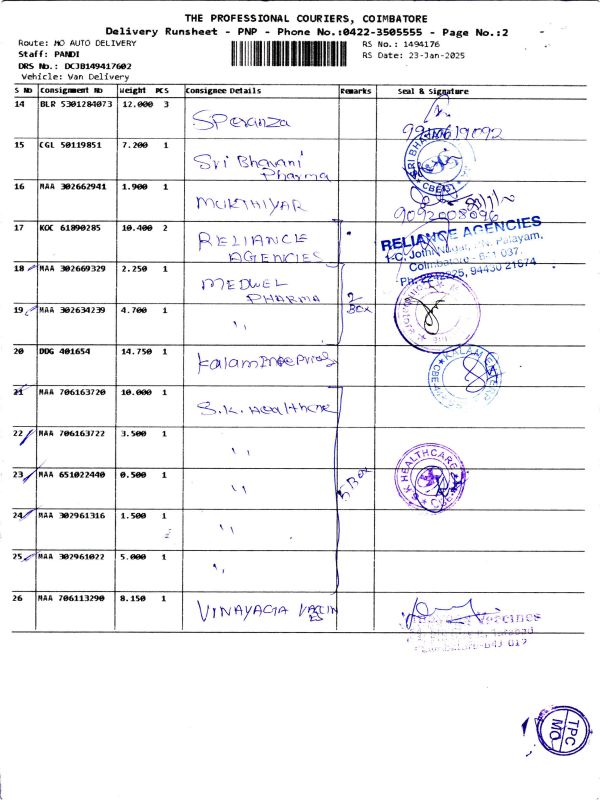 THE PROFESSIONAL COURIERS, COIMBATORE
Delivery Runsheet - PNP - Phone No.:0422-3505555 - Page No.:2
Route: MO AUTO DELIVERY
RS No.: 1494176
Staff: PANDI
RS Date: 23-Jan-2025
DRS No.: DCJB149417602
Vehicle: Van Delivery
S No Consignment No Weight PCS Consignee Details Remarks Seal & Signature
14 BLR 5301284073 12.000 3 Speranza
15 CGL 50119851 7.200 1 Sri Bhavani Pharma
16 MAA 302662941 1.900 1 MUKTHIYAR
9092008096
17 KOC 61890285 10.400 2 RELIANCE AGENCIES
RELIANCE AGENCIES
Coimbatore - 641 037.
18 MAA 302669329 2.250 1 MEDWEL PHARMA 2 Box
19 MAA 302634239 4.700 1 ,,
20 DDG 401654 14.750 1
KALAM
21 MAA 706163720 10.000 1 S.K. Healthcare
22 MAA 706163722 3.500 1 ,,
23 MAA 651022440 0.500 1 ,, 5 Box
S K HEALTHCARE
24 MAA 302961316 1.500 1 ,,
25 MAA 302961022 5.000 1 ,,
26 MAA 706113290 8.150 1 VINAYAGA
Vaccines
TPC
MO